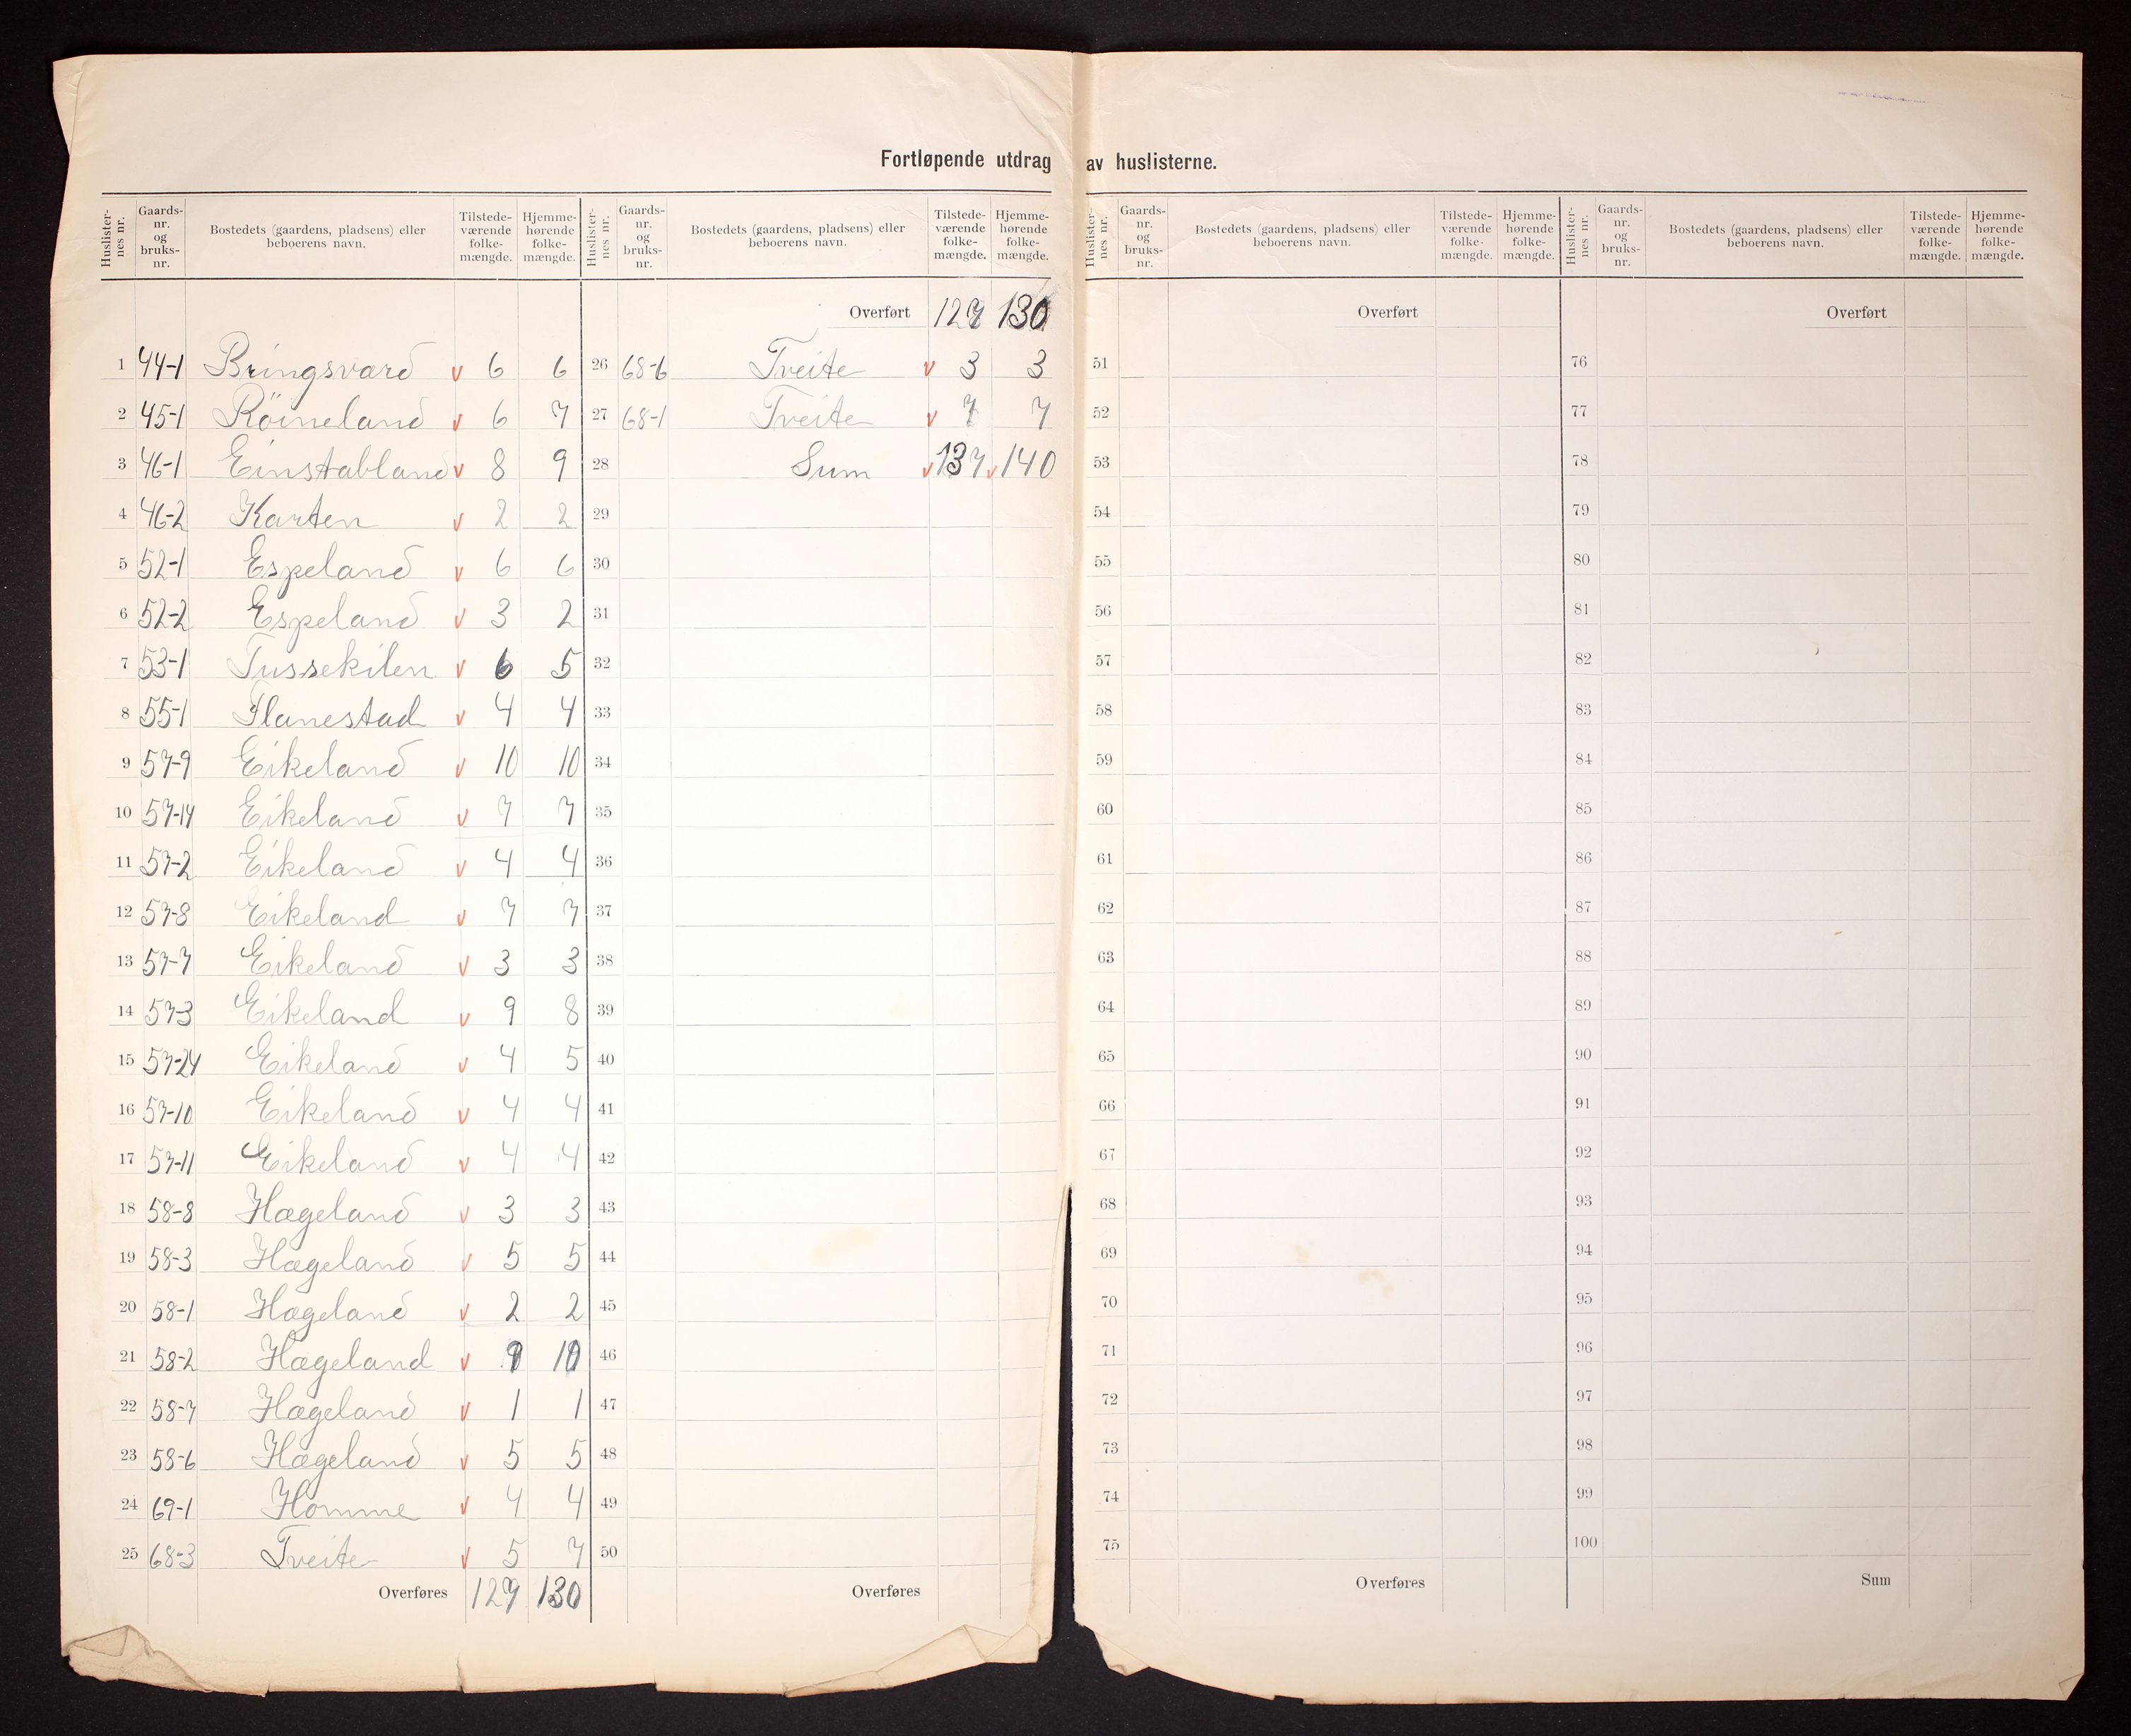 Fortløpende utdrag av huslisterne.
Huslisternes nr. Gaards-nr. og bruks-nr. Bostedets (gaardens, pladsens) eller beboerens navn. Tilstedeværende folkemængde. Hjemmehørende folkemængde.
1 44-1 Bringsværd v 6 6
2 45-1 Röineland v 6 7
3 46-1 Einstabland v 8 9
4 46-2 Karten v 2 2
5 52-1 Espeland v 6 6
6 52-2 Espeland v 3 2
7 53-1 Tussekilen v 6 5
8 55-1 Flanestad v 4 4
9 57-9 Eikeland v 10 10
10 57-14 Eikeland v 7 7
11 57-2 Eikeland v 4 4
12 57-8 Eikeland v 7 7
13 57-7 Eikeland v 3 3
14 57-3 Eikeland v 9 8
15 57-24 Eikeland v 4 5
16 57-10 Eikeland v 4 4
17 57-11 Eikeland v 4 4
18 58-8 Hægeland v 3 3
19 58-3 Hægeland v 5 5
20 58-1 Hægeland v 2 2
21 58-2 Hægeland v 9 10
22 58-7 Hægeland v 1 1
23 58-6 Hægeland v 5 5
24 69-1 Homme v 4 4
25 68-3 Tveite v 5 7
Overføres 127 130
Huslisternes nr. Gaards-nr. og bruks-nr. Bostedets (gaardens, pladsens) eller beboerens navn. Tilstedeværende folkemængde. Hjemmehørende folkemængde.
Overført 127 130
26 68-6 Tveite v 3 3
27 68-1 Tveite v 7 7
28 Sum v 137 v 140
29
30
31
32
33
34
35
36
37
38
39
40
41
42
43
44
45
46
47
48
49
50
Overføres
Huslisternes nr. Gaards-nr. og bruks-nr. Bostedets (gaardens, pladsens) eller beboerens navn. Tilstedeværende folkemængde. Hjemmehørende folkemængde.
Overført
51
52
53
54
55
56
57
58
59
60
61
62
63
64
65
66
67
68
69
70
71
72
73
74
75
Overføres
Huslisternes nr. Gaards-nr. og bruks-nr. Bostedets (gaardens, pladsens) eller beboerens navn. Tilstedeværende folkemængde. Hjemmehørende folkemængde.
Overført
76
77
78
79
80
81
82
83
84
85
86
87
88
89
90
91
92
93
94
95
96
97
98
99
100
Sum